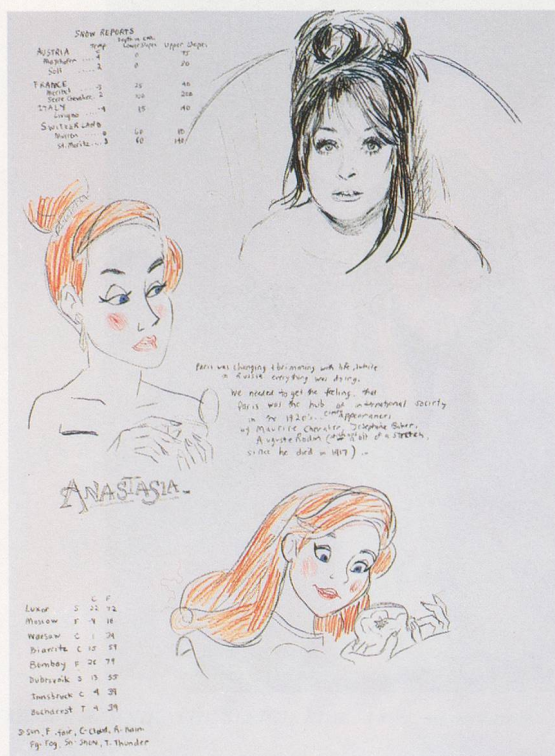 SNOW REPORTS
Temp Depth in cms. Lower Slopes Upper Slopes
AUSTRIA
0 75
Söll .... 2 0 20
FRANCE
Meribel .... -3 25 90
Serre Chevalier 120 200
ITALY
Livigno .... -4 85 140
SWITZERLAND
60
St. Moritz .... 60
Paris was changing & brimming with life, while
in Russia everything was dying.
We needed to get the feeling that
Paris was the hub of international society
in the 1920's... Appearances
by Maurice Chevalier, Josephine Baker,
Auguste Rodin of a stretch,
since he died in 1917)...
ANASTASIA
C F
Luxor S 22 72
Moscow F 18
Warsaw C 1 34
Biarritz C 15 59
Bombay F 26 79
Dubrovnik S 13 55
Innsbruck C 4 39
Bucharest T 4 39
S-Sun, F-fair, C-Cloud, R-Rain
Fg-Fog, Sn-Snow, T-Thunder